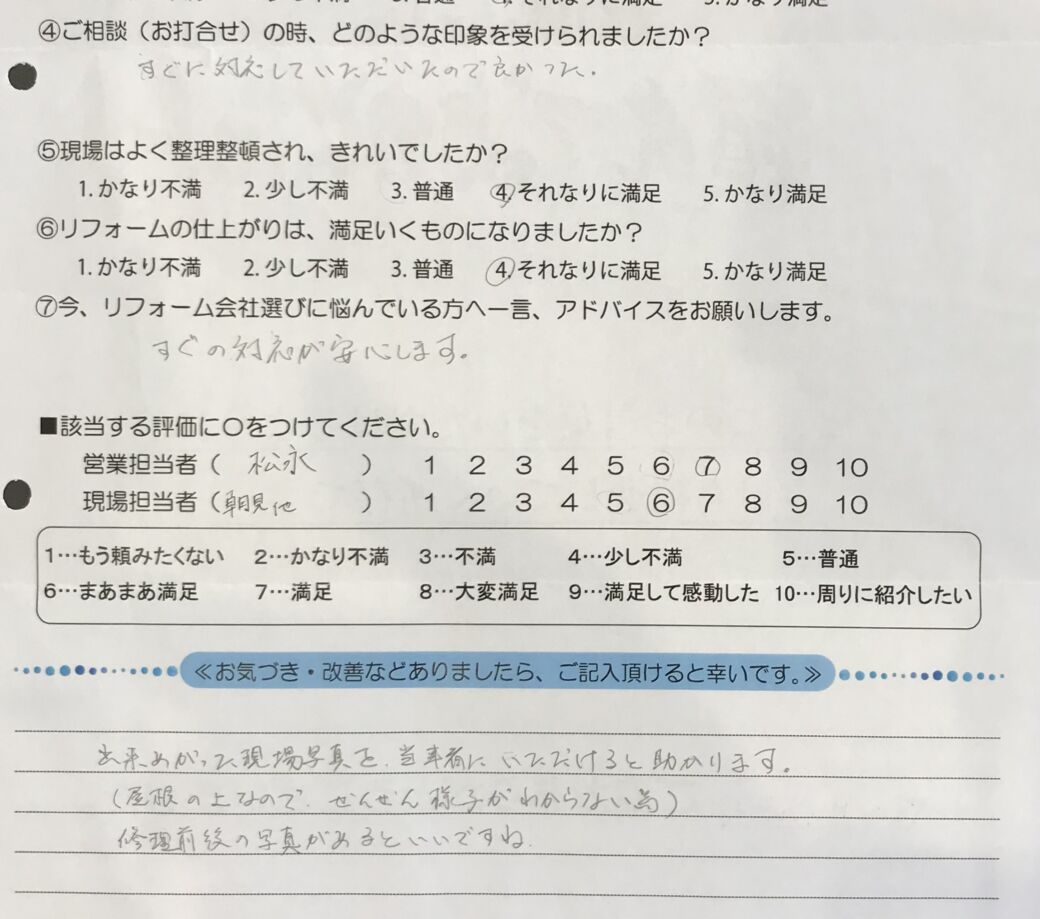 ④ご相談（お打合せ）の時、どのような印象を受けられましたか？
すぐに対応していただいたので良かった.
⑤現場はよく整理整頓され、きれいでしたか？
1.かなり不満 2.少し不満 3.普通 4.それなりに満足 5.かなり満足
⑥リフォームの仕上がりは、満足いくものになりましたか？
1.かなり不満 2.少し不満 3.普通 4.それなりに満足 5.かなり満足
⑦今、リフォーム会社選びに悩んでいる方へ一言、アドバイスをお願いします。
すぐの対応が安心します。
■該当する評価に〇をつけてください。
営業担当者（ 松永 ） 1 2 3 4 5 6 7 8 9 10
現場担当者（朝見他 ） 1 2 3 4 5 6 7 8 9 10
1…もう頼みたくない 2…かなり不満 3…不満 4…少し不満 5…普通
6…まあまあ満足 7…満足 8…大変満足 9…満足して感動した 10…周りに紹介したい
≪お気づき・改善などありましたら、ご記入頂けると幸いです。≫
出来あがった現場写真を、当事者に いただけると助かります。
(屋根の上なので、ぜんぜん 様子がわからない為)
修理前後の写真があるといいですね.